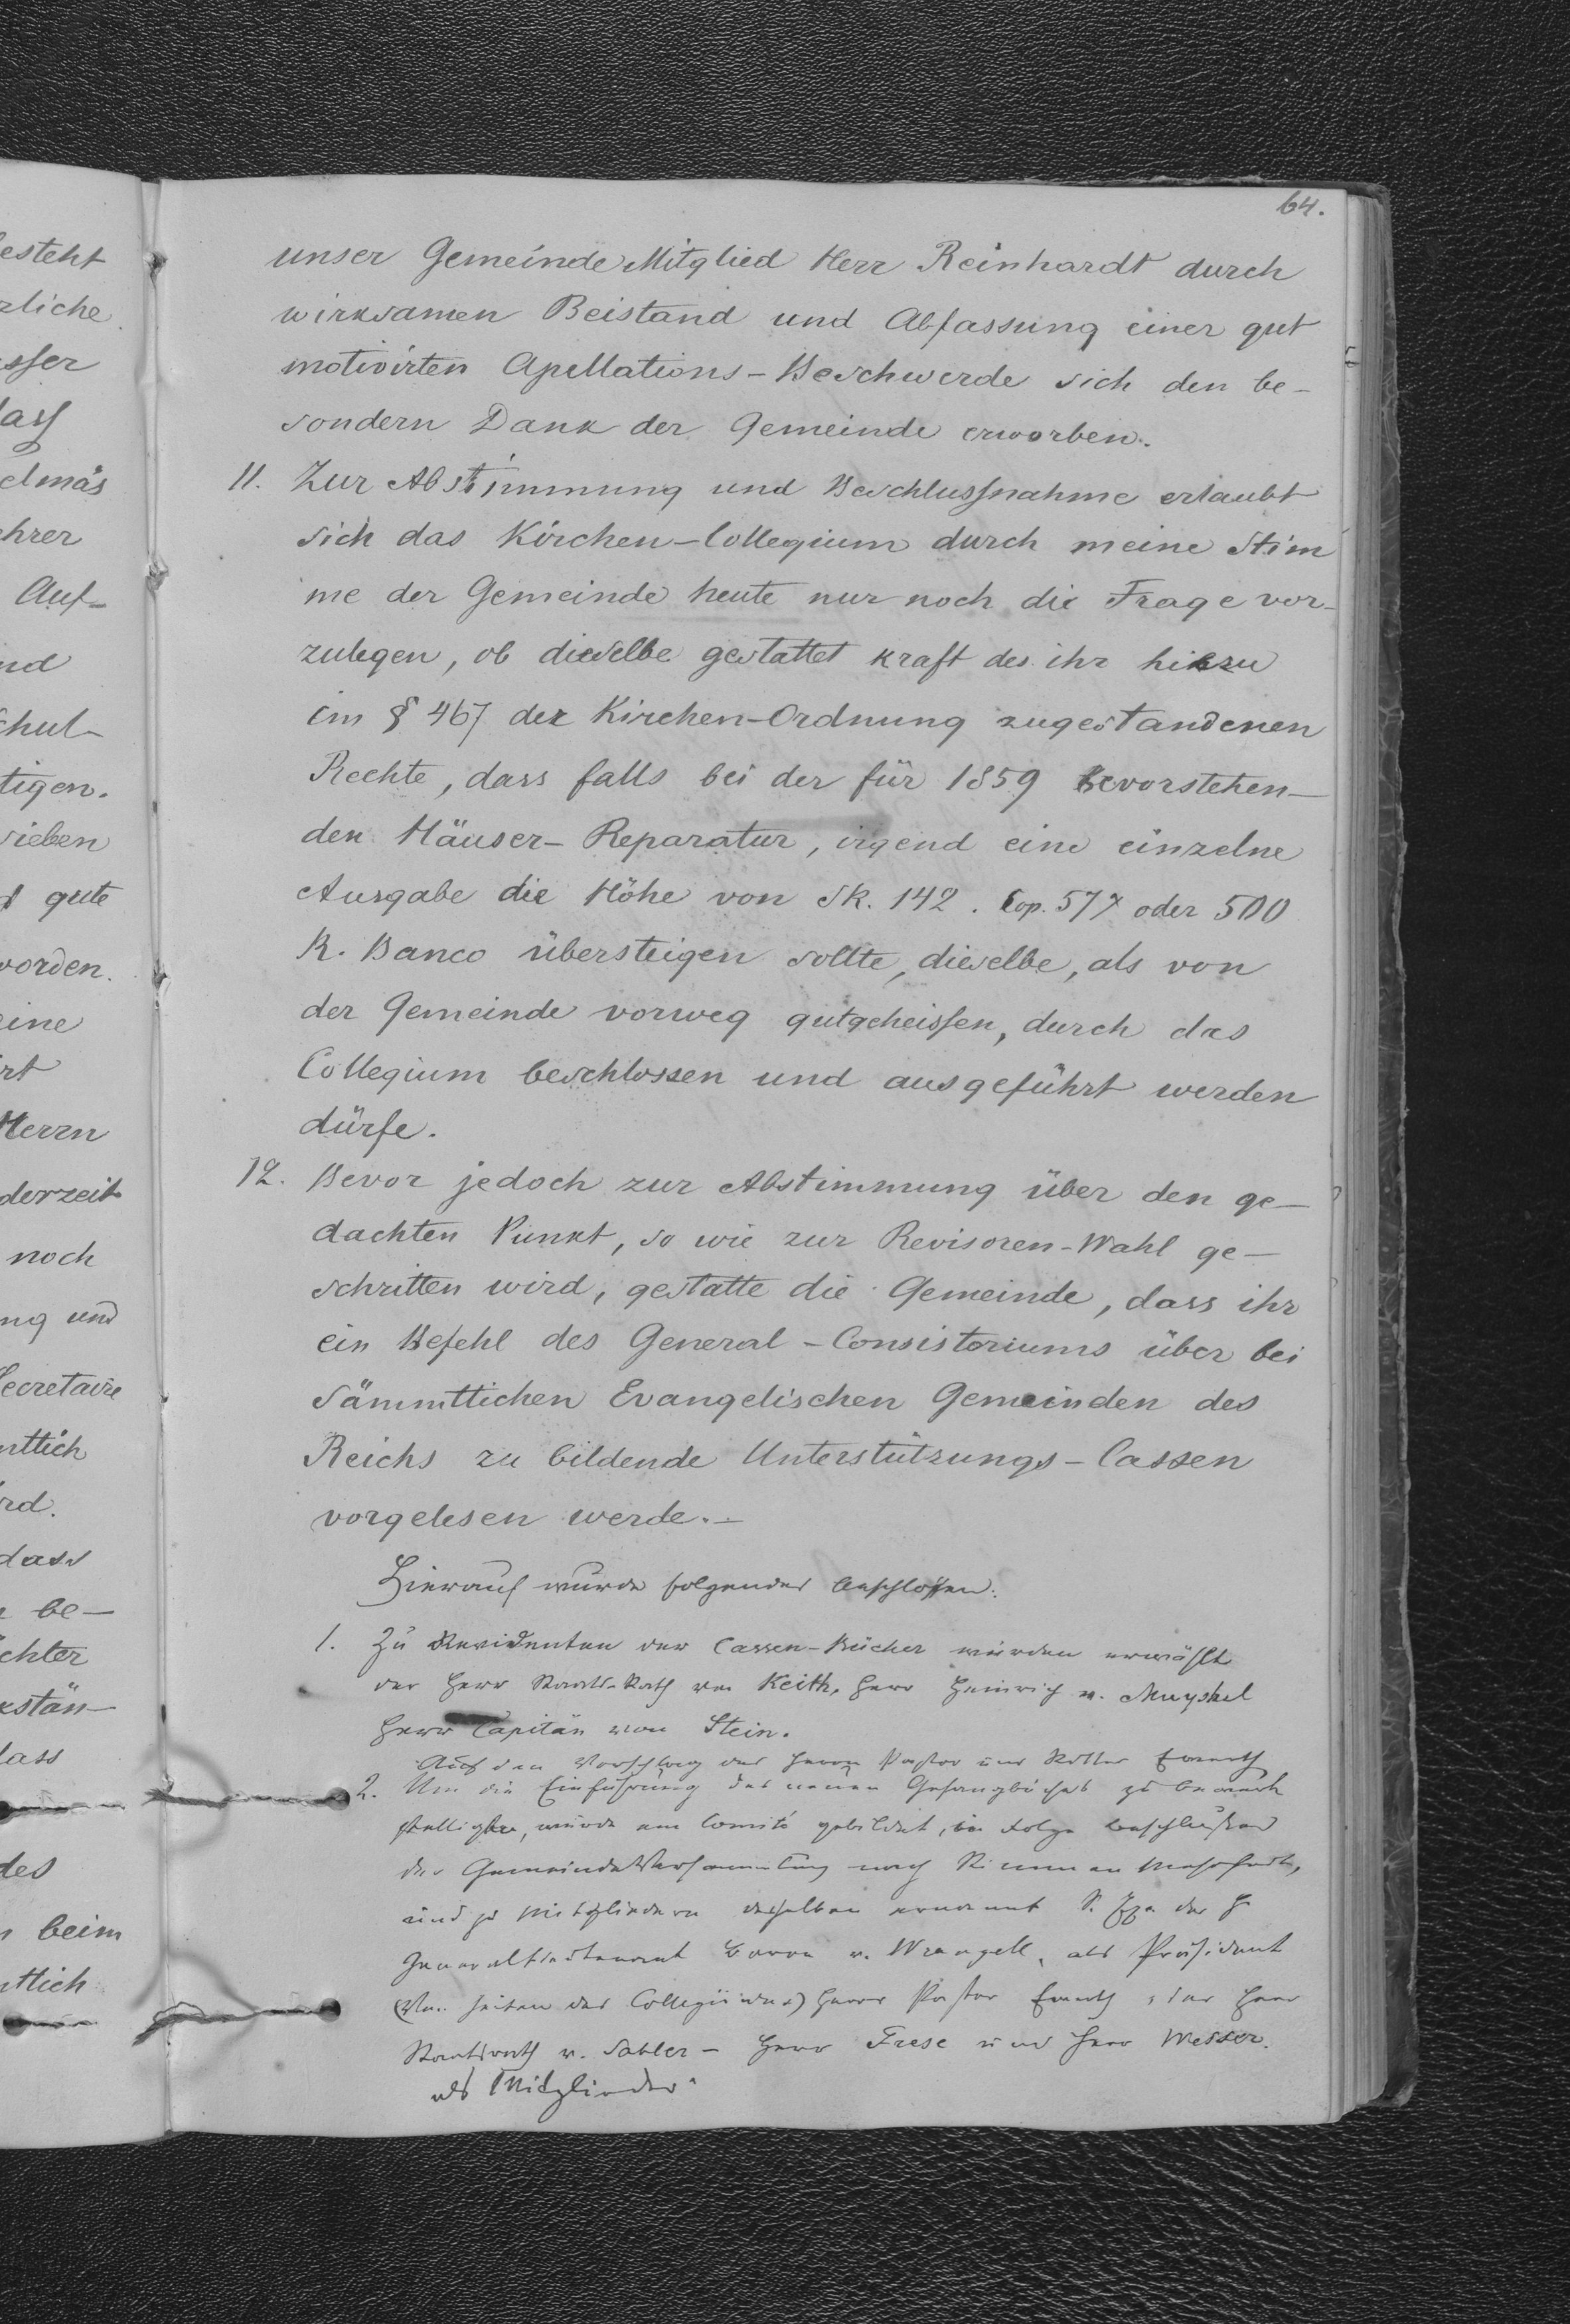 64.
unser Gemeinde Mitglied Herr Reinhardt durch
wirksamen Beistand und Abfassung einer gut
motivirten Apellations-Beschwerde sich den be-
sondern Dank der Gemeinde erworben.
11. Zur Abstimmung und Beschlussnahme erlaubt
sich das Kirchen-Collegium durch meine Stim
me der Gemeinde heute nur noch die Frage vor-
zulegen, ob dieselbe gestattet kraft des ihr hiezu
im § 467 der Kirchen-Ordnung zugestandenen
Rechte, dass falls bei der für 1859 bevorstehen-
den Häuser-Reparatur, irgend eine einzelne
Ausgabe die Höhe von SR. 142. Cop. 57 oder 500
R. Banco übersteigen sollte, dieselbe, als von
der Gemeinde vorweg gutgeheissen, durch das
Collegium beschlossen und ausgeführt werden
dürfe.
12. Bevor jedoch zur Abstimmung über den ge-
dachten Punkt, so wie zur Revisoren-Wahl ge-
schritten wird, gestatte die Gemeinde, dass ihr
ein Befehl des General-Consistoriums über bei
sämmtlichen Evangelischen Gemeinden des
Reichs zu bildende Unterstützungs-Cassen
vorgelesen werde.-
Hierauf wurde folgendes beschlossen:
1. Zu Revidenten der Cassen-Bücher wurden erwählt
der Herr Staats-Rath von Keith, Herr Heinrich v. Muyschel
Herr Capitän von Stein.
Auf den Vorschlag des Herrn Pastor und Ritter
2. Um die Einführung des neuen Gesangbuches zu bewerk
stelligen, wurde ein Comité gebildet, in Folge Beschlusses
der Gemeinde Versammlung nach Stimmen Mehrheit,
und zu Mitgliedern desselben ernannt S. der H
Generallieutenant Baron v. Wrangell, als Präsident
(Von Seiten des Collegiums) Herr Pastor der Herr
Staatsrath v. Sabler - Herr Frese und Herr Messer.
als Mitglieder.
esteht
zliche
sser
lass
elmäs
ehrer
Auf-
nd
chul-
tigen.
sieben
gute
worden.
eine
rt
Herrn
derzeit
noch
ng und
Secretaire
ntlich
rd.
dass
be-
chter
kstän-
lass
des
beim
ntlich